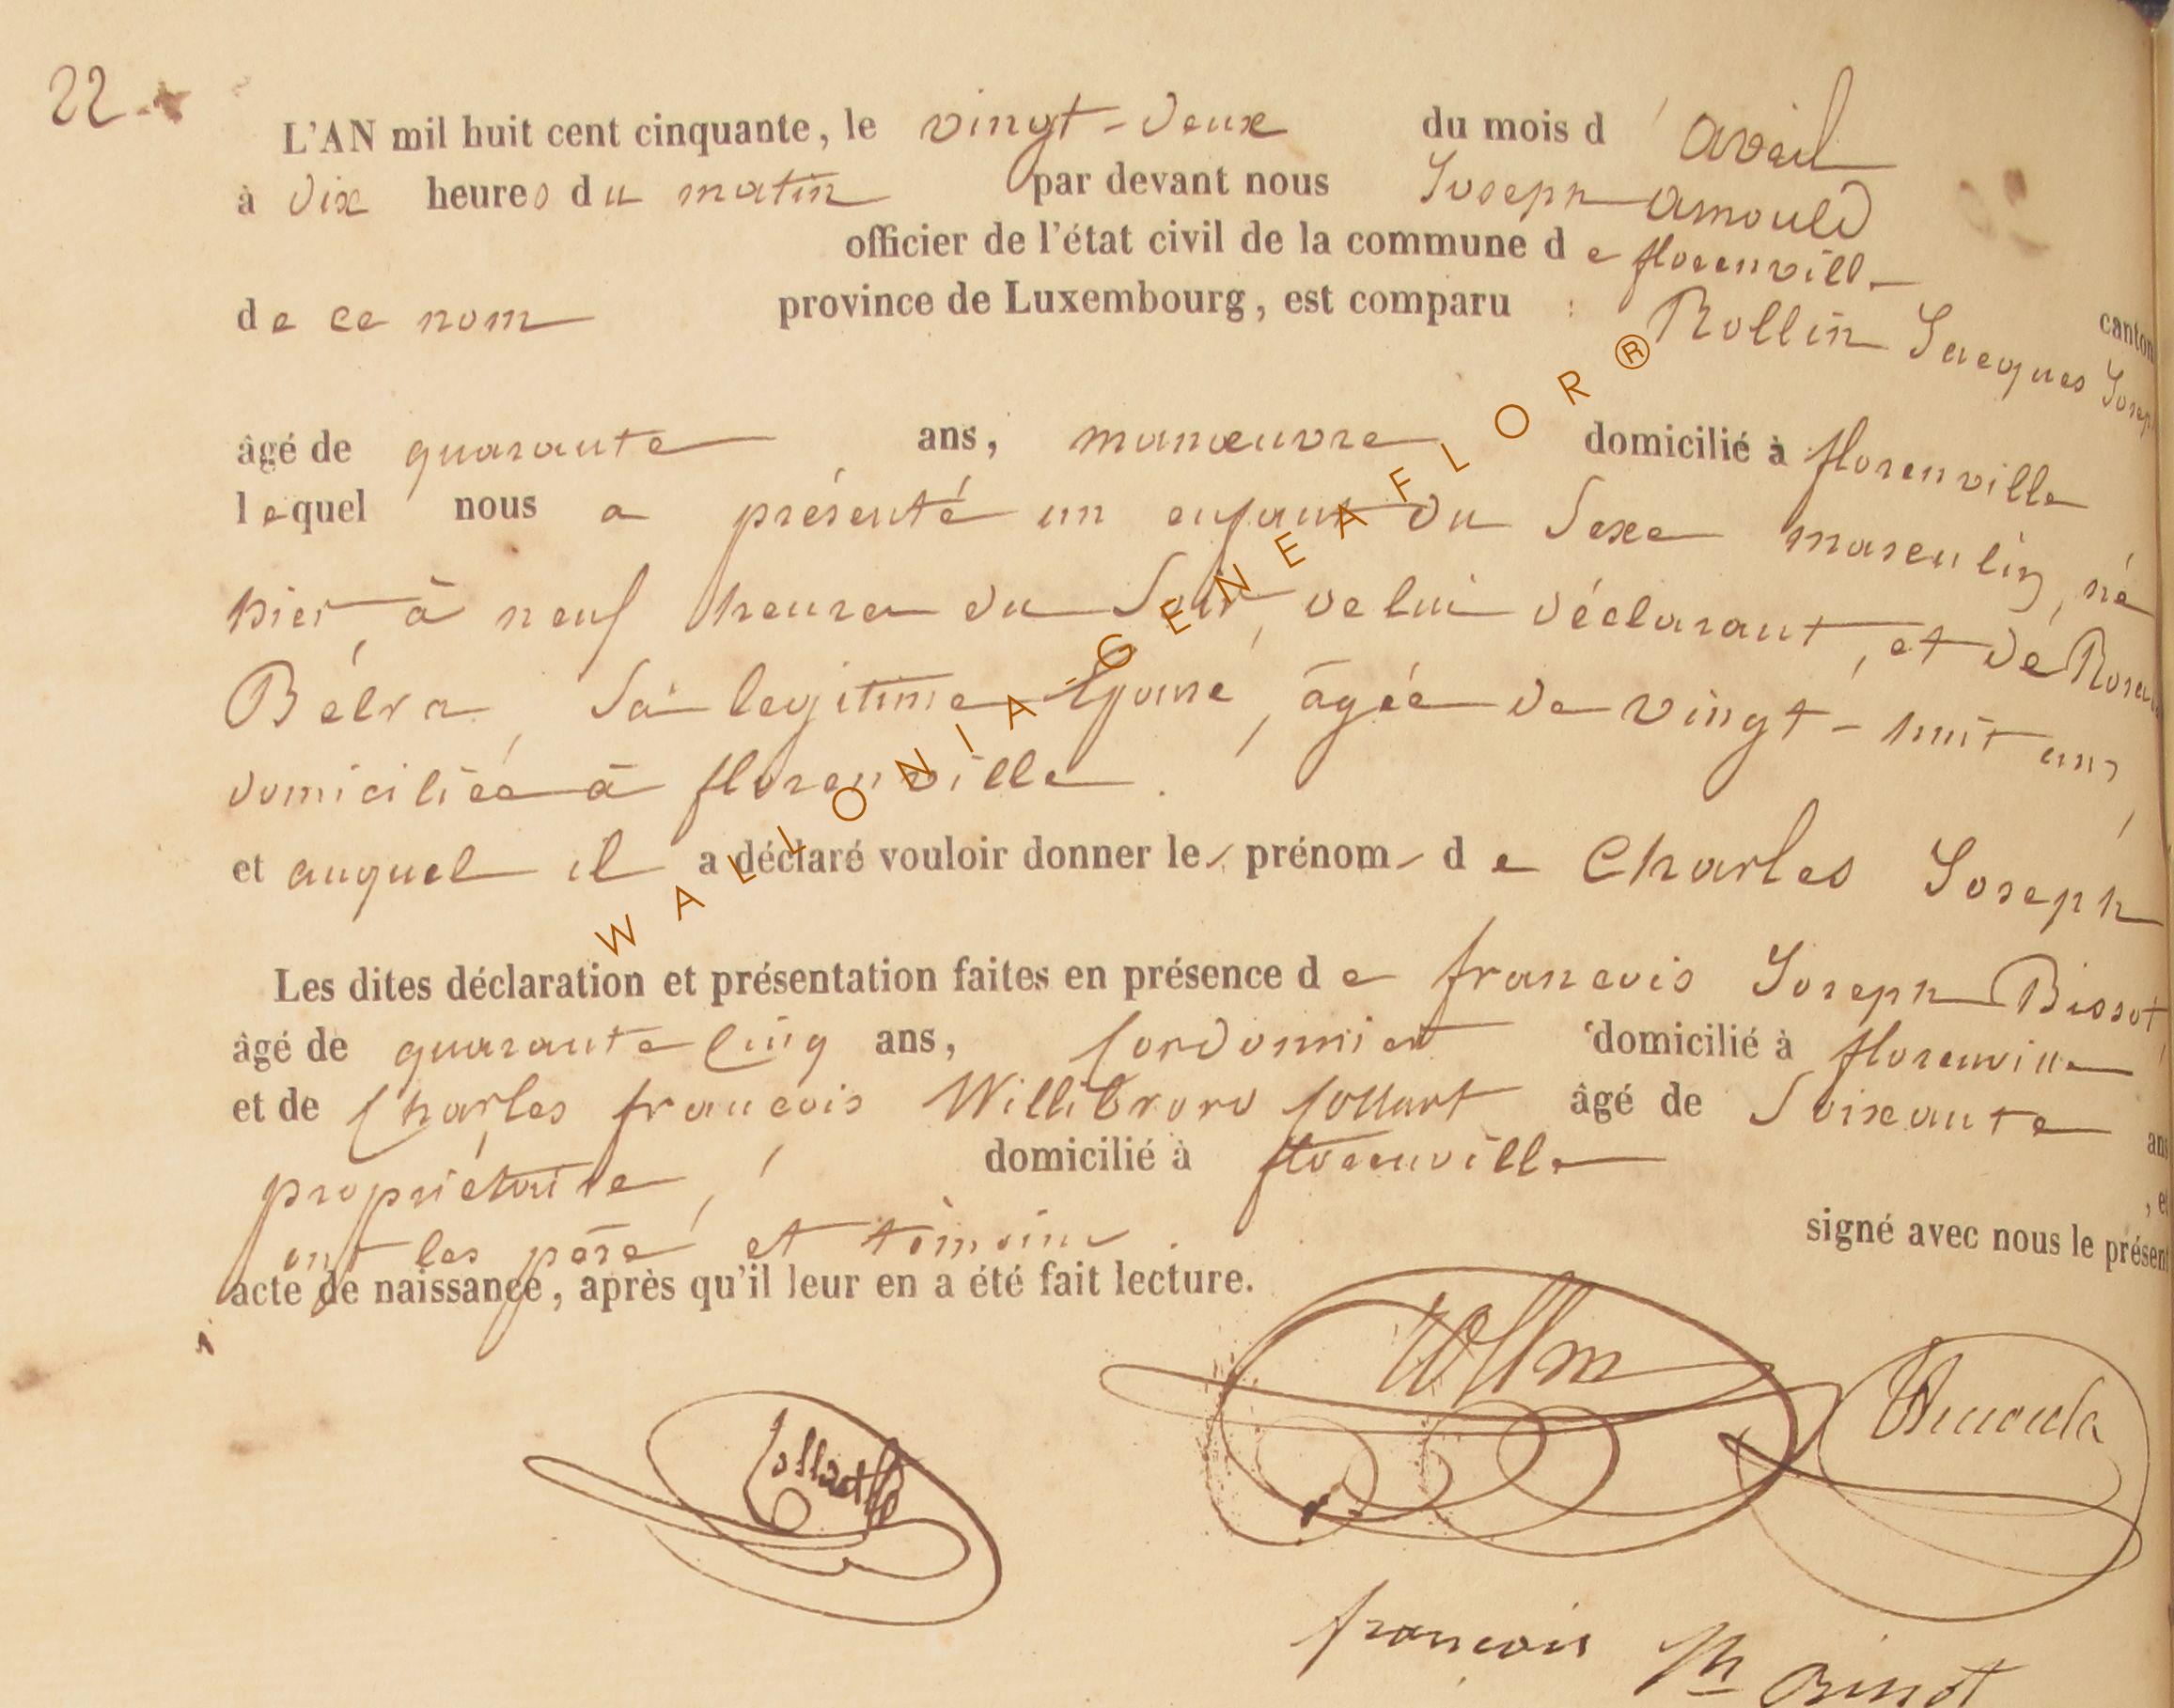 22
L'AN mil huit cent cinquante, le vingt-deux du mois d'avril
à dix heures du matin par devant nous Joseph Arnould
officier de l'état civil de la commune de florenville canton
de ce nom province de Luxembourg, est comparu : Rollin Jacques Joseph
âgé de quarante ans, manœuvre domicilié à florenville
lequel nous a présenté un enfant du sexe masculin, né
hier, à neuf heures du Soir, de lui déclarant, et de
Bélva, Sa legitime Epouse, âgée de vingt-huit ans,
domiciliée à florenville.
et auquel il a déclaré vouloir donner les prénoms de Charles Joseph
Les dites déclaration et présentation faites en présence de francois Joseph Bissot,
âgé de quarante cinq ans, Cordonnier domicilié à florenville
et de Charles francois Willibrord Collart âgé de Soixante ans
propriétaire, domicilié à florenville, et
ont les père et témoins. signé avec nous le présent
acte de naissance, après qu'il leur en a été fait lecture.
Rollin
Arnould
Collart
francois Jh Bissot
WALLONIA-GENEAFLOR®